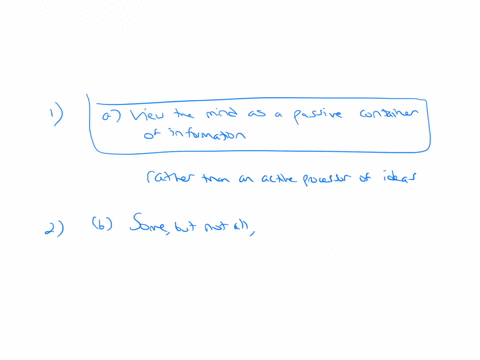 1) a) View the mind as a passive container
of information
rather than an active processor of ideas
2) (b) Some, but not all,